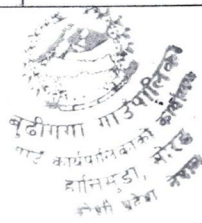 बुढीगंगा गाउँपालिका
गाउँ कार्यपालिकाको कार्यालय
हानिमुडा, मोरङ
कोशी प्रदेश नेपाल